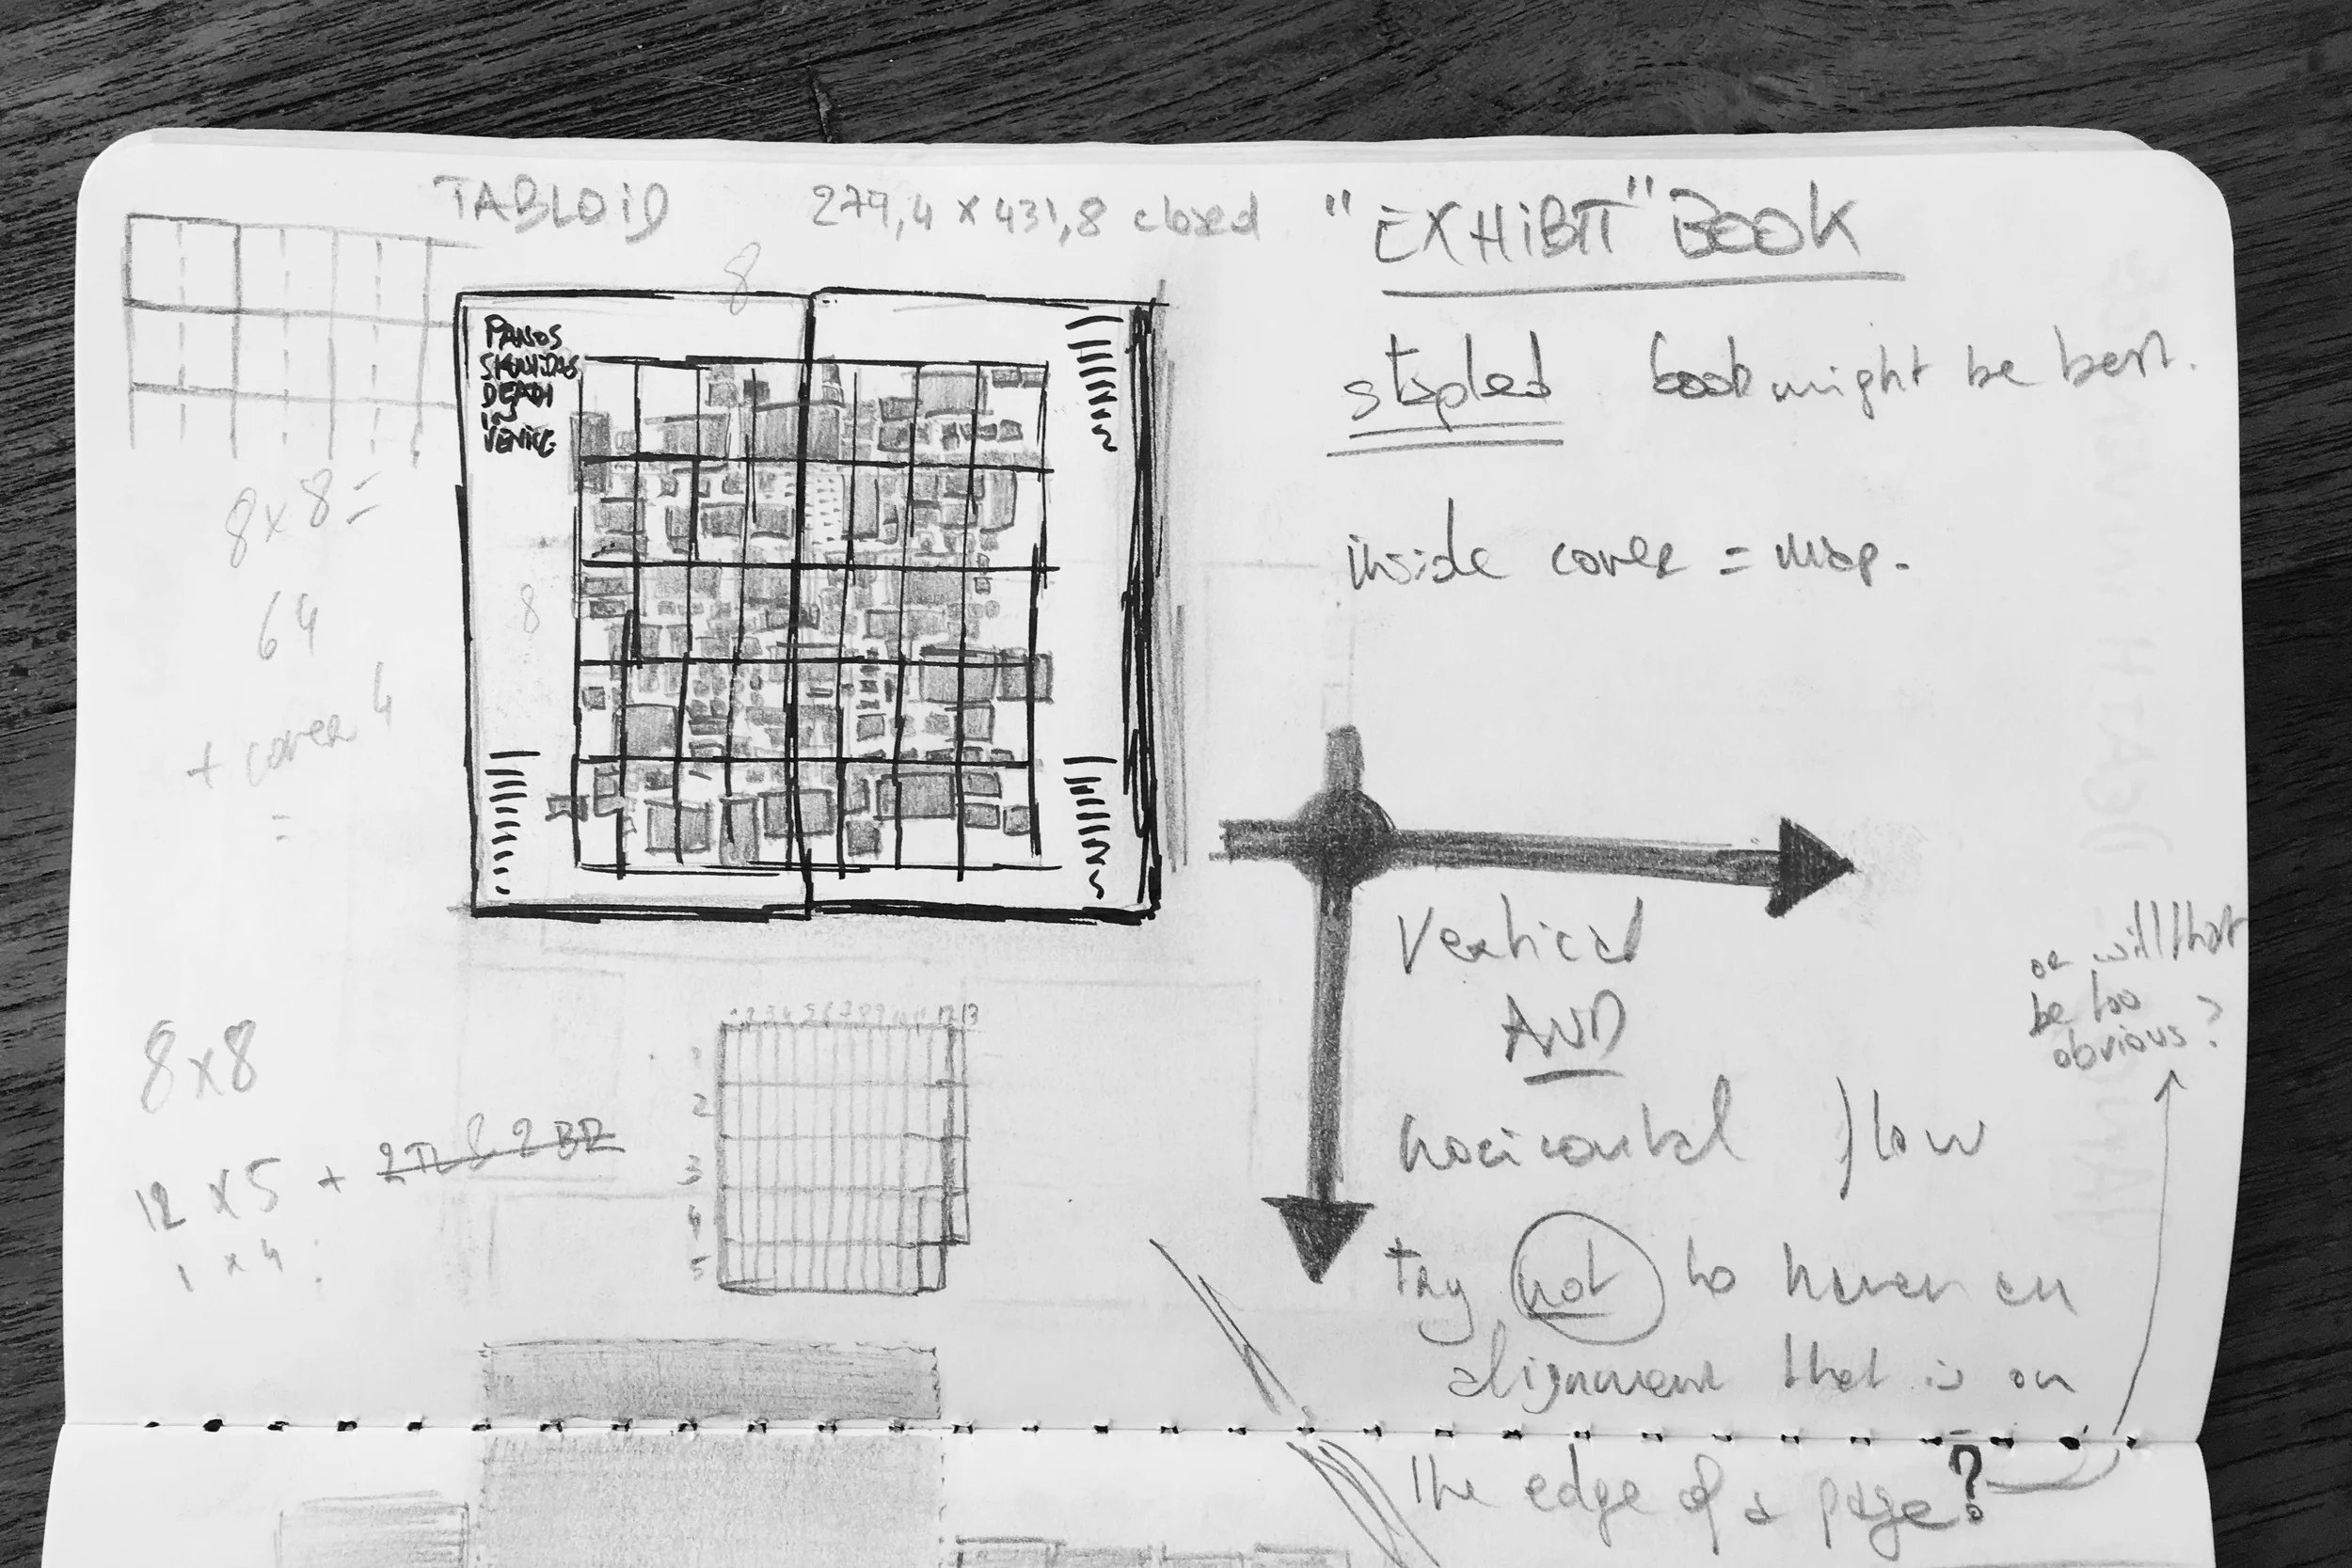 TABLOiD
279,4 × 431,8 closed
"EXHiBiT" BOOK
8
PANOS
SKOULIDAS
DEATH
IN
VENICE
stapled book might be best.
8×8=
64
+ cover 4
=
8
inside cover = map.
Vertical
AND
horizontal flow
or will that
be too
obvious?
8×8
12 × 5 + 2TL & 2BR
1 × 4
12 13
1
2
3
4
5
try not to have an
alignment that is on
the edge of a page?